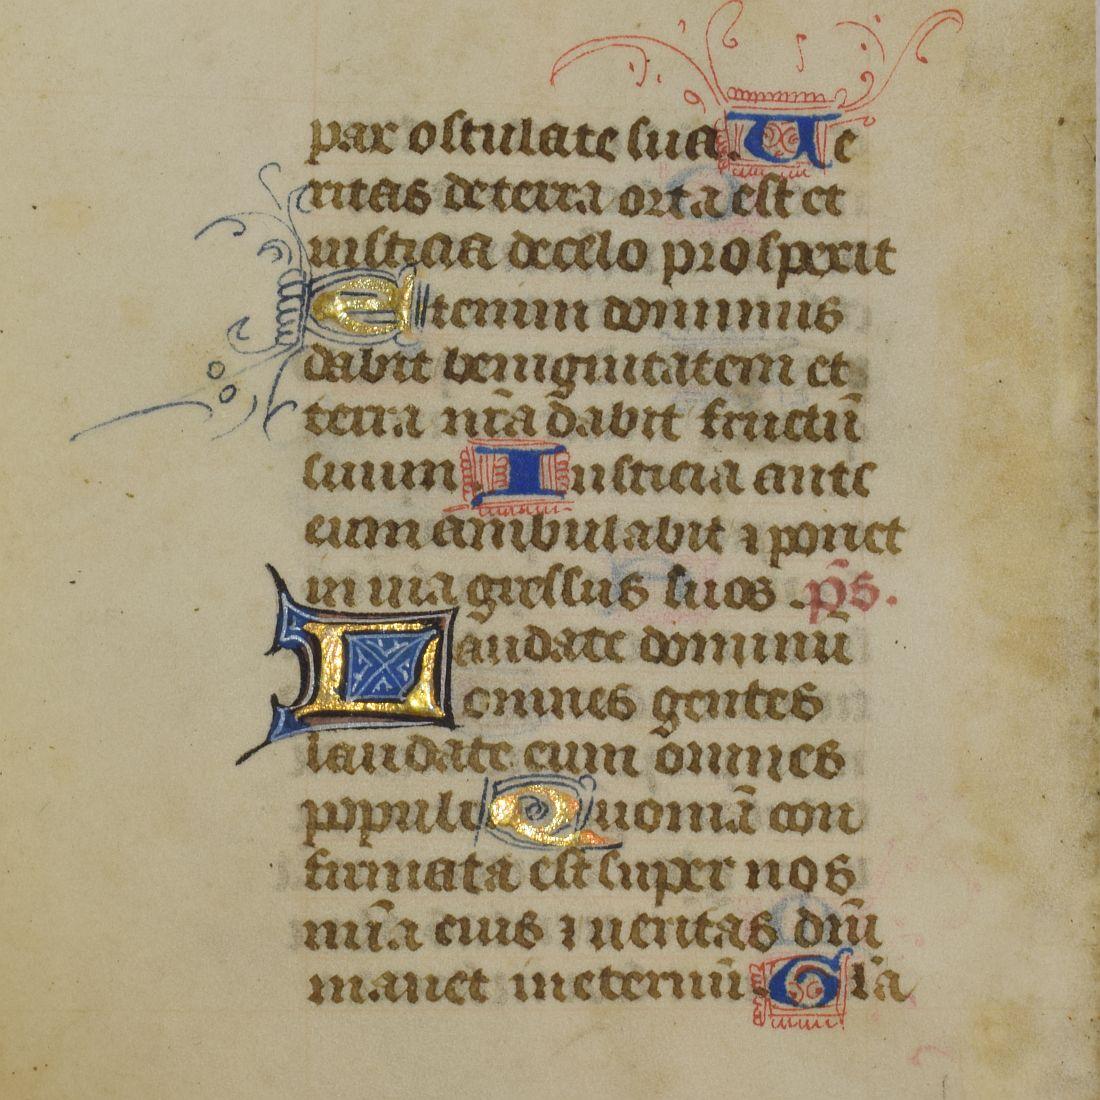 pax ostulate sua. Ue
ritas de terra orta est et
iusticia de celo prospexit
Etenim dominus
dabit benignitatem et
terra nr̄a dabit fructū
suum Iusticia ante
eum ambulabit ⁊ ponet
in uia gressus suos . ps̄.
Laudate dominū
omnes gentes
laudate eum omnes
populi Quoniā con
firmata est super nos
mīa eius ⁊ ueritas dn̄i
manet ineternū. Glīa